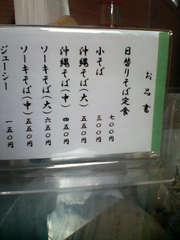 お品書
日替りそば定食 七〇〇円
小そば 三〇〇円
沖縄そば(大) 五五〇円
沖縄そば(中) 四五〇円
ソーキそば(大) 六五〇円
ソーキそば(中) 五五〇円
ジューシー 一五〇円